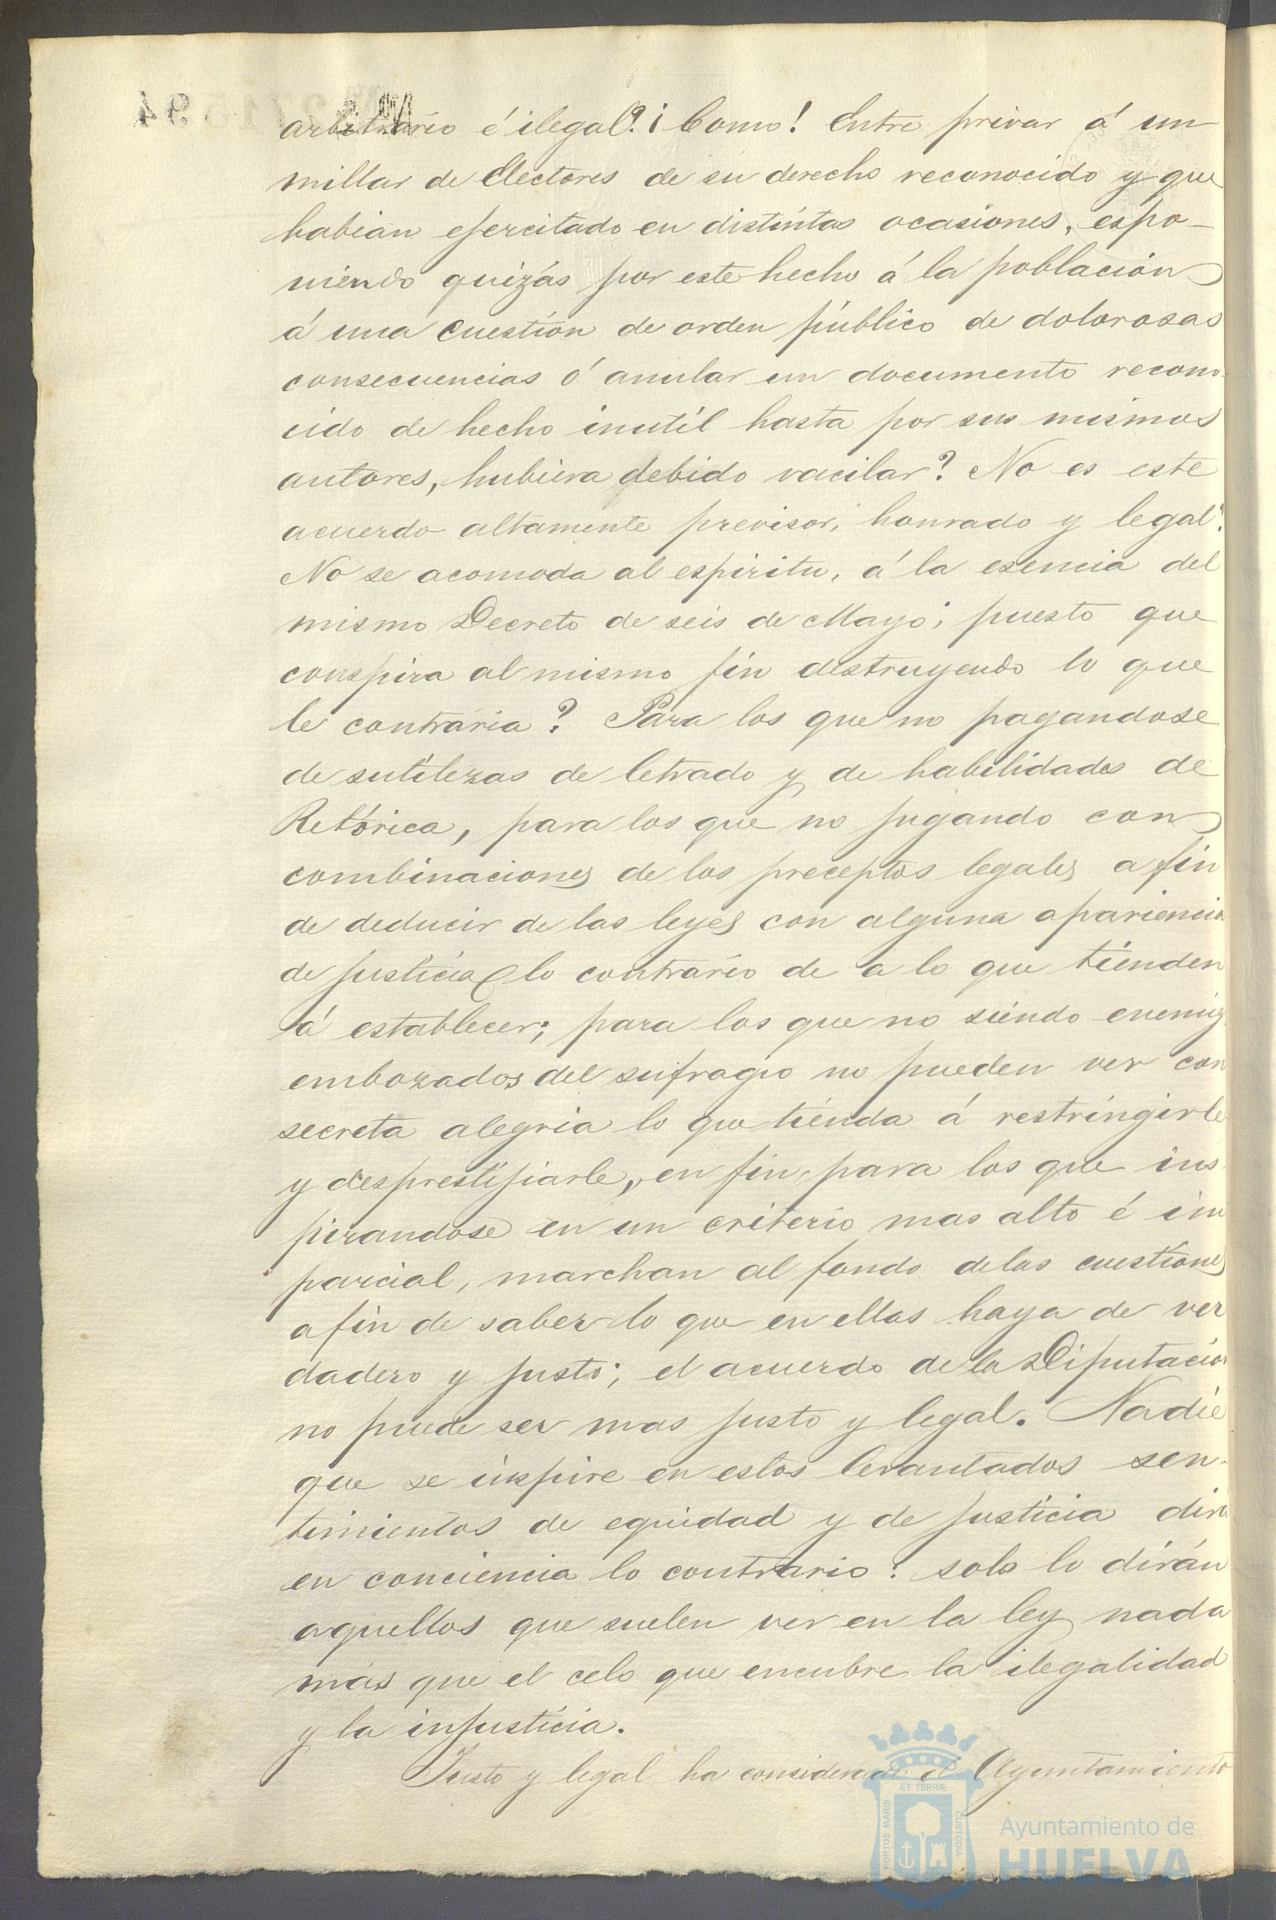 arbitrario é ilegal? ¡Como! Entre privar á un
millar de Electores de su derecho reconocido y que
habian ejercitado en distintas ocasiones, espo-
niendo quizás por este hecho á la población
á una cuestión de orden público de dolorosas
consecuencias ó anular un documento recono-
cido de hecho inutil hasta por sus mismos
autores, hubiera debido vacilar? No es este
acuerdo altamente previsor, honrado y legal?
No se acomoda al espiritu, á la esencia del
mismo Decreto de seis de Mayo; puesto que
conspira al mismo fin destruyendo lo que
le contraria? Para los que no pagandose
de sutilezas de letrado y de habilidades de
Retórica, para los que no jugando con
combinaciones de los preceptos legales a fin
de deducir de las leyes con alguna apariencia
de justicia lo contrario de a lo que tienden
á establecer; para los que no siendo enemig
embozados del sufragio no pueden ver con
secreta alegria lo que tienda á restringirle
y desprestijiarle, en fin, para los que ins-
pirandose en un criterio mas alto é im
parcial, marchan al fondo de las cuestiones
a fin de saber lo que en ellas haya de ver
dadero y justo; el acuerdo de la Diputación
no puede ser mas justo y legal. Nadie
que se inspire en estos levantados sen-
timientos de equidad y de justicia dirá
en conciencia lo contrario: solo lo dirán
aquellos que suelen ver en la ley nada
más que el celo que encubre la ilegalidad
y la injusticia.
Justo y legal ha considerado el Ayuntamiento
PORTUS MARIS ET TERRÆ CUSTODIA
Ayuntamiento de
HUELVA